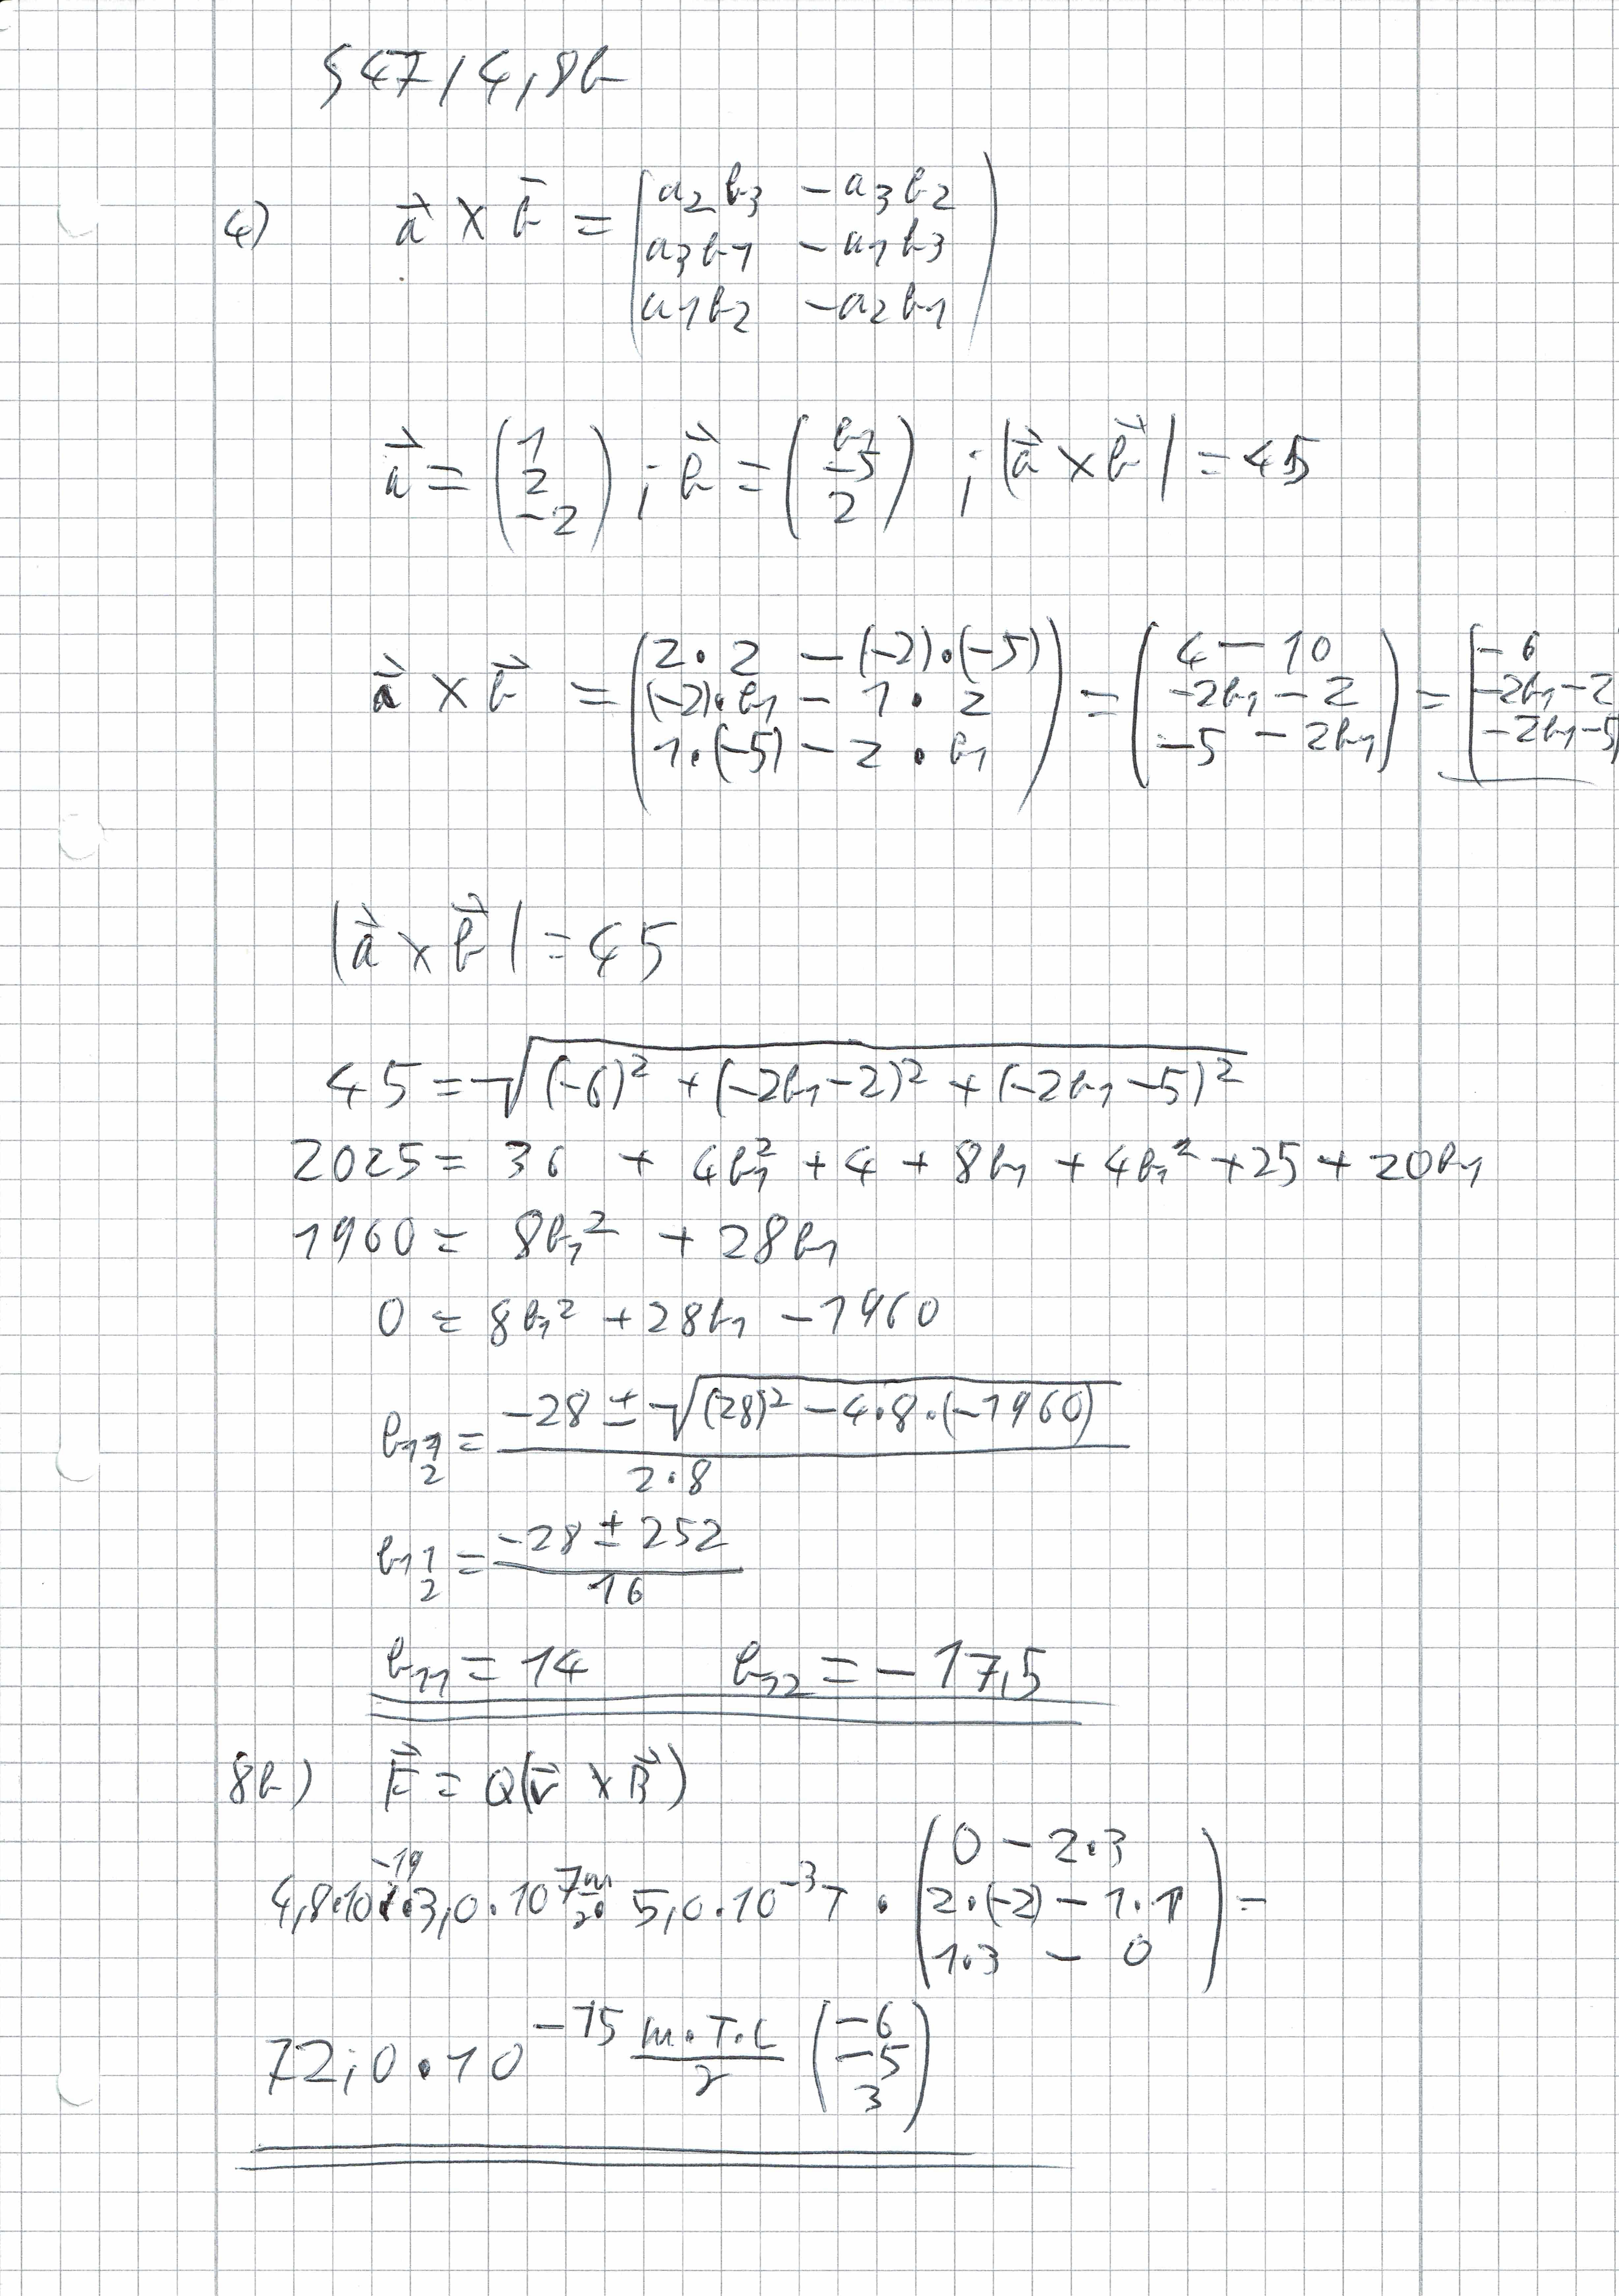 S47/4,8b
4) a⃗ × b⃗ = (a2b3 - a3b2
a3b1 - a1b3
a1b2 - a2b1)
a⃗ = (1
2
-2) ; b⃗ = (b1
-5
2) ; |a⃗ × b⃗| = 45
a⃗ × b⃗ = (2·2 - (-2)·(-5)
(-2)·b1 - 1·2
1·(-5) - 2·b1) = (4 - 10
-2b1 - 2
-5 - 2b1) = (-6
-2b1-2
-2b1-5)
|a⃗ × b⃗| = 45
45 = √((-6)² + (-2b1-2)² + (-2b1-5)²)
2025 = 36 + 4b1² + 4 + 8b1 + 4b1² + 25 + 20b1
1960 = 8b1² + 28b1
0 = 8b1² + 28b1 - 1960
b1 1/2 = (-28 ± √((28)² - 4·8·(-1960))) / (2·8)
b1 1/2 = (-28 ± 252) / 16
b11 = 14 b12 = -17,5
8b) F⃗ = Q(v⃗ × B⃗)
3,0·10⁷ m/s · 5,0·10⁻³ T · (0 - 2·3
2·(-2) - 1·1
1·3 - 0) =
72,0·10⁻¹⁵ m·T·C/s (-6
-5
3)